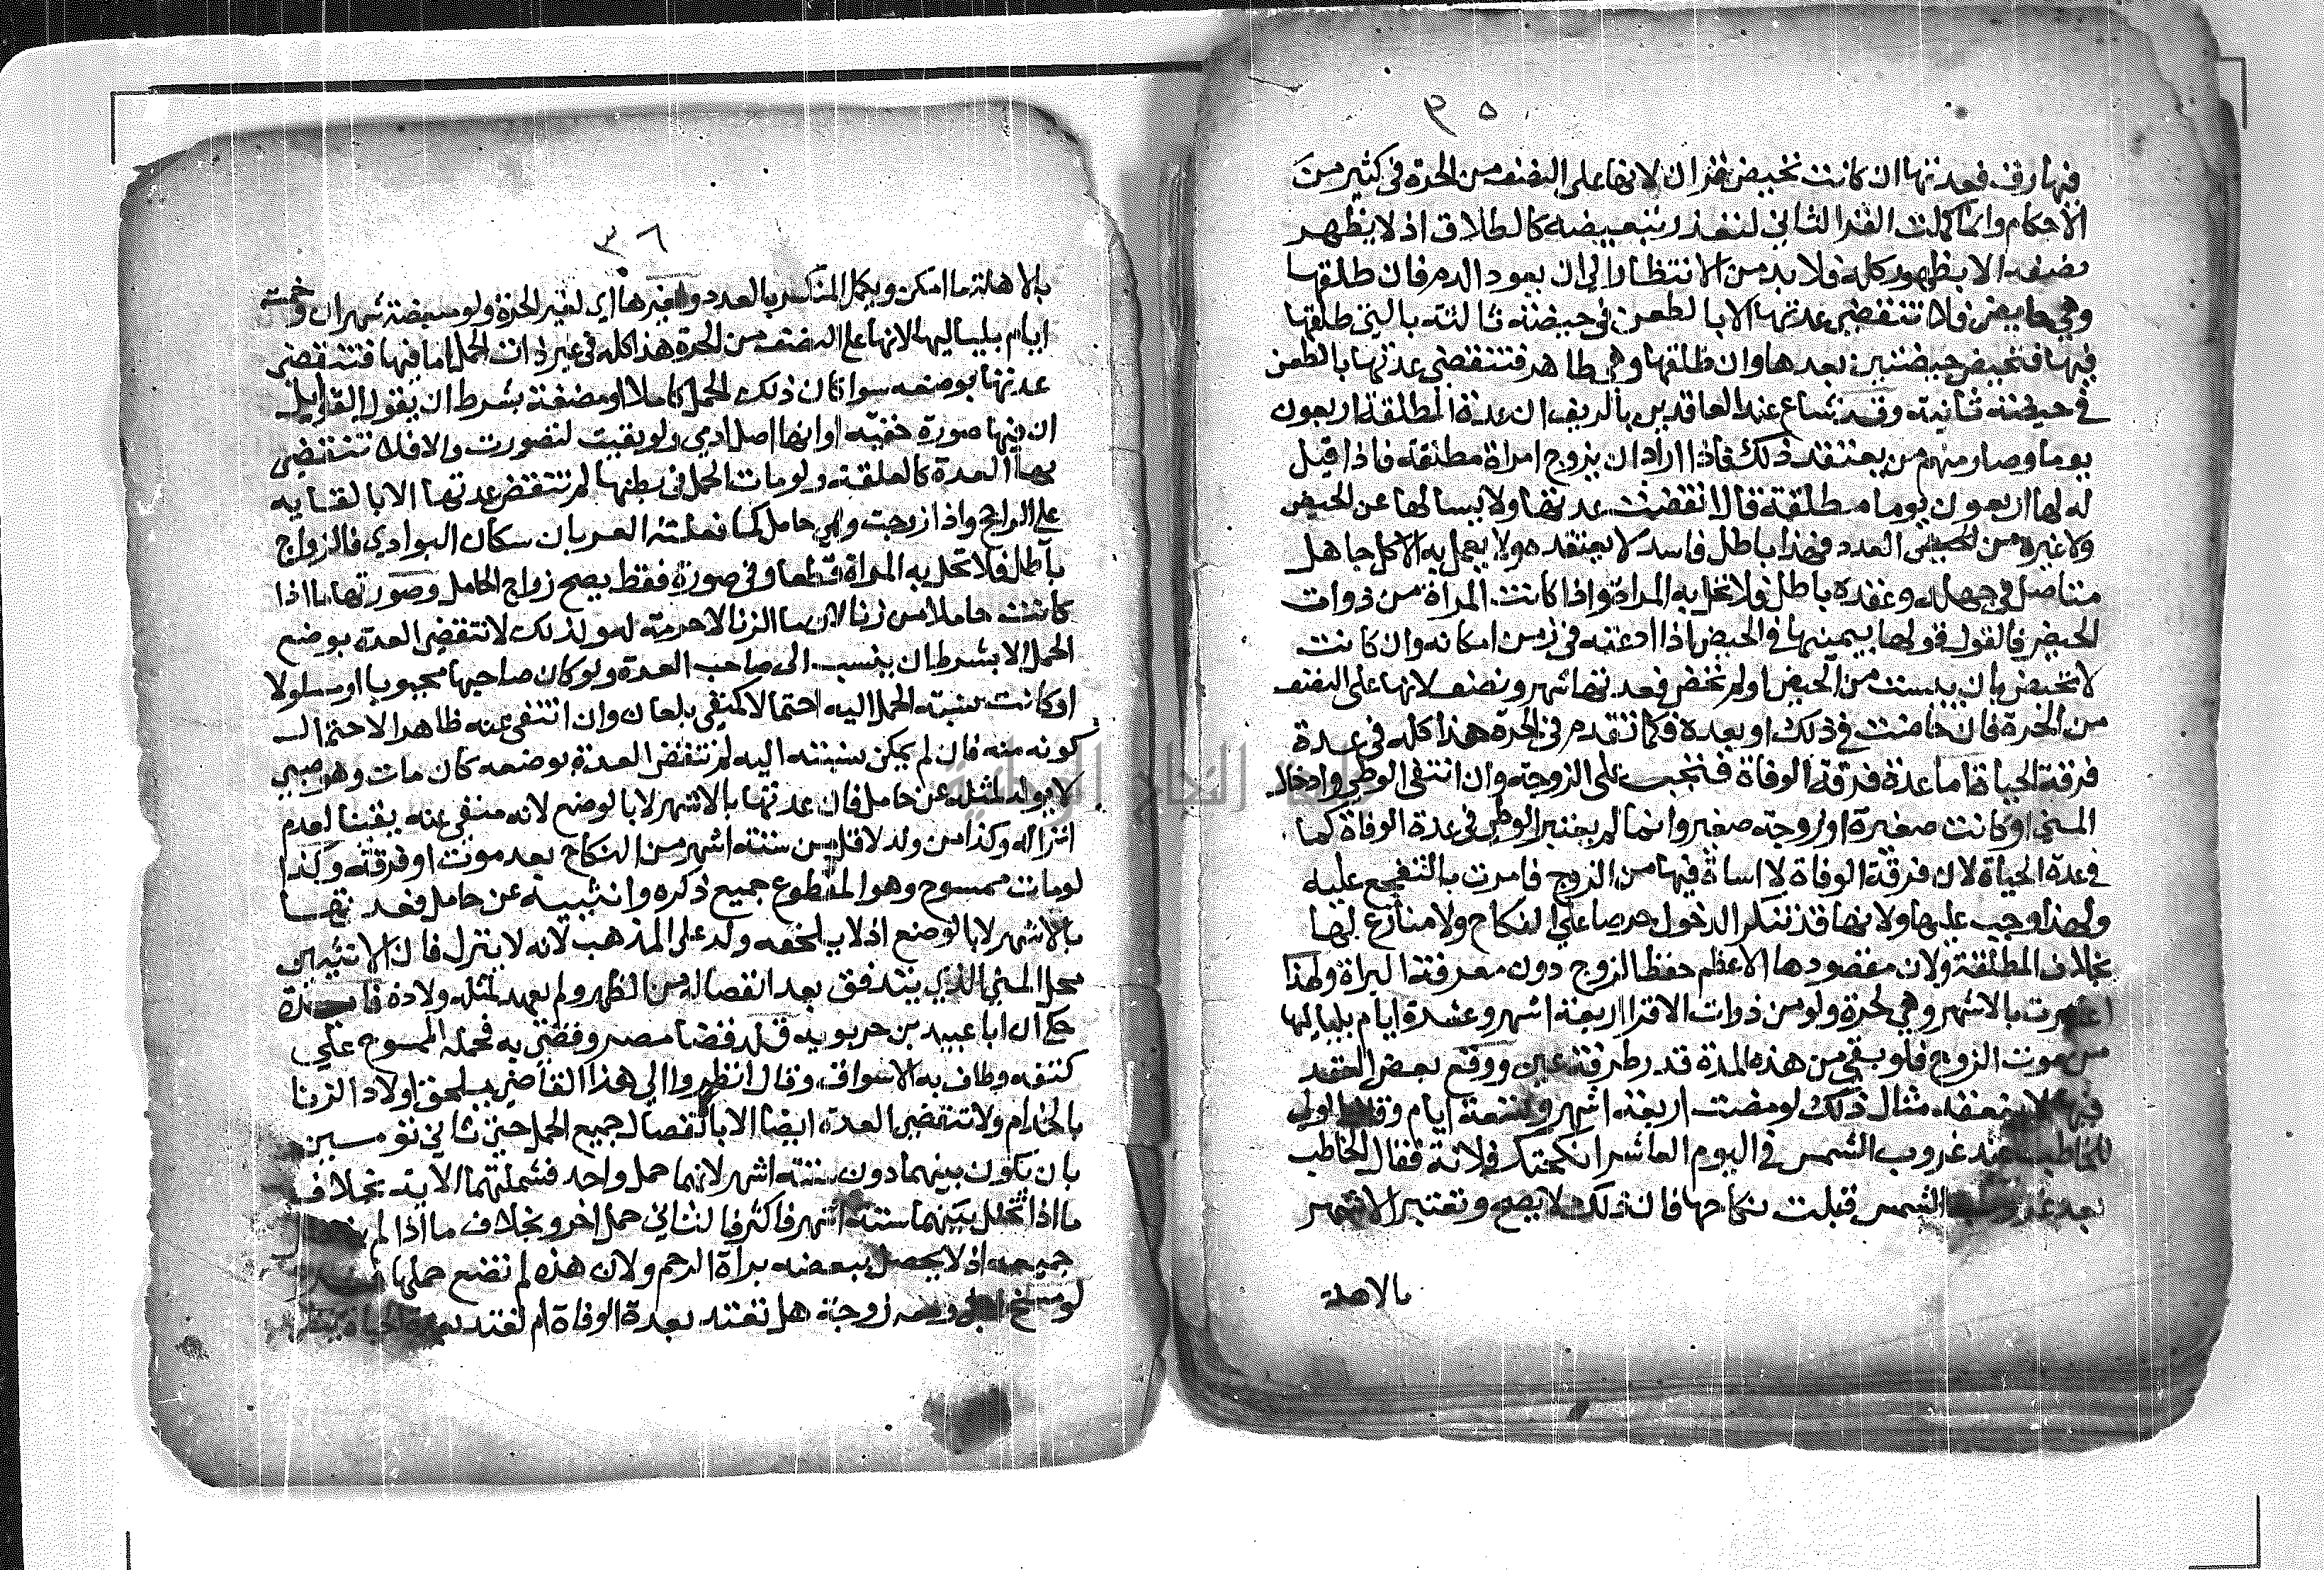 ٣٥
فيها رق فعدتها ان كانت تحيض قران لانها على النصف من الحرة في كثير من
الاحكام وانما كملت القرا الثاني لتعذر تبعيضه كالطلاق اذ لا يظهر
نصفه الا بظهور كله فلا بد من الانتظار الى ان يعود الدم فان طلقها
وهي حايض فلا تنقضي عدتها الا بالطعن في حيضة ثالثة بالتي طلقها
فيها فتحيض حيضتين بعدها وان طلقها وهي طاهر فتنقضي عدتها بالطعن
في حيضة ثانية وقد شاع عند العاقدين بالريف ان عدة المطلقة اربعون
يوما وصار منهم من يعتقد ذلك فاذا اراد ان يزوج امراة مطلقة فاذا قيل
له لها اربعون يوما مطلقة قال انقضت عدتها ولا يسالها عن الحيض
ولا غيره من العدد فهذا باطل فاسد لا يعتقده ولا يعمل به الا كل جاهل
متاصل في جهله وعقده باطل فلا تحل به المراة واذا كانت المراة من ذوات
الحيض فالقول قولها بيمينها في الحيض اذا ادعته في زمن امكانه وان كانت
لا تحيض بان يئست من الحيض او لم تحض فعدتها شهر ونصف لانها على النصف
من الحرة فان حاضت في ذلك او بعده فكما تقدم في الحرة هذا كله في عدة
فرقة الحياة اما عدة فرقة الوفاة فتجب على الزوجة وان انتفى الوطي وادخال
المني او كانت صغيرة او زوجة صغير وانما لم يعتبر الوطي في عدة الوفاة كما
في عدة الحياة لان فرقة الوفاة لا اساة فيها من الزوج فامرت بالتفجع عليه
ولهذا وجب عليها ولانها قد تنكر الدخول حرصا على النكاح ولا منازع لها
بخلاف المطلقة ولان مقصودها الاعظم حفظ الزوج دون معرفة البراة ولهذا
اعتبرت بالاشهر وهي لحرة ولو من ذوات الاقرا اربعة اشهر وعشرة ايام بلياليها
من موت الزوج فلو بقي من هذه المدة قدر طرفة عين ووقع بعض العقد
فيها لا ينعقد مثال ذلك لو مضت اربعة اشهر وتسعة ايام وقال الولي
للخاطب عند غروب الشمس في اليوم العاشر انكحتك فلانة فقال الخاطب
بعد غروب الشمس قبلت نكاحها فان ذلك لا يصح وتعتبر الاشهر
بالاهلة
٣٦
بالاهلة ما امكن ويكمل المنكسر بالعدد ولغيرها اي لغير الحرة ولو مبعضة شهران وخمسة
ايام بلياليها لانها على النصف من الحرة هذا كله في غير ذات الحمل اما فيها فتنقضي
عدتها بوضعه سوا كان ذلك الحمل كاملا او مضغة بشرط ان يقول القوابل
ان فيها صورة خفية او انها اصل ادمي ولو بقيت لتصورت والا فلا تنقضي
بها العدة كالعلقة ولو مات الحمل في بطنها لم تنقض عدتها الا بالقايه
على الراجح واذا زوجت وهي حامل كما فعلته العربان سكان البوادي فالزواج
باطل فلا تحل به المراة قطعا وفي صورة فقط يصح زواج الحامل وصورتها ما اذا
كانت حاملا من زنا لان ما الزنا لا حرمة له ولذلك لا تنقضي العدة بوضع
الحمل الا بشرط ان ينسب الى صاحب العدة ولو كان صاحبها مجبوبا او مسلولا
او كانت نسبة الحمل اليه احتمالا كمنفي بلعان وان انتفى عنه ظاهرا لاحتمال
كونه منه فان لم يمكن نسبته اليه لم تنقض العدة بوضعه كان مات وهو صبي
لا يولد لمثله عن حامل فان عدتها بالاشهر لا بالوضع لانه منفي عنه يقينا لعدم
انزاله وكذا من ولد لاقل من ستة اشهر من النكاح بعد موت او فرقة وكذا
لو مات ممسوح وهو المقطوع جميع ذكره وانثييه عن حامل فعدتها
بالاشهر لا بالوضع اذ لا يلحقه ولد على المذهب لانه لا ينزل فان الانثيين
محل المني الذي يتدفق بعد انفصاله من الظهر ولم يعهد لمثله ولادة فايدة
حكي ان ابا عبيد بن حربويه قلد قضا مصر وقضى به فحمله الممسوح على
كتفه وطاف به الاسواق وقال انظروا الى هذا القاضي يلحق اولاد الزنا
بالخدام ولا تنقضي العدة ايضا الا بانفصال جميع الحمل حتى ثاني توءمين
بان يكون بينهما دون ستة اشهر لانهما حمل واحد فشملتهما الاية بخلاف
ما اذا تخلل بينهما ستة اشهر فاكثر فالثاني حمل اخر وبخلاف ما اذا لم
جميعه اذ لا يحصل ببعضه براة الرحم ولان هذه لم تضع حملها
لو مسخ زوجة هل تعتد بعدة الوفاة ام تعتد الحياة